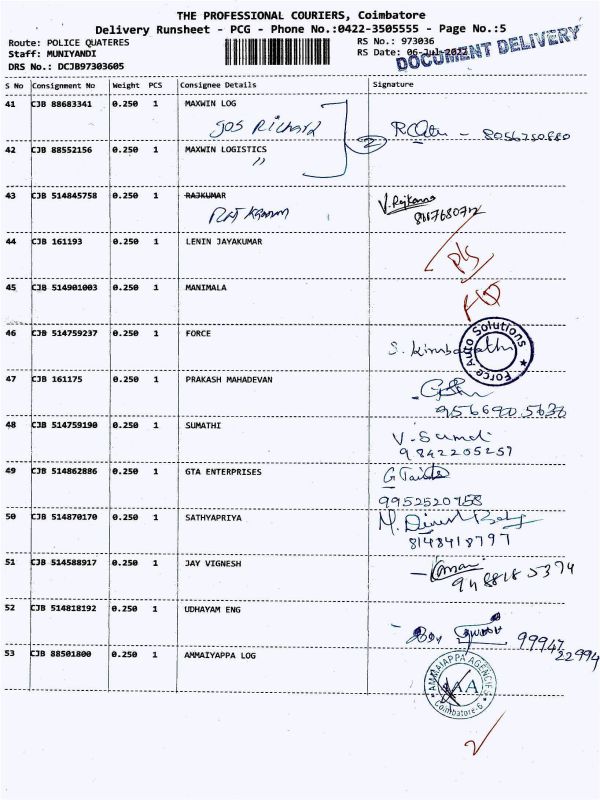 THE PROFESSIONAL COURIERS, Coimbatore
Delivery Runsheet - PCG - Phone No.:0422-3505555 - Page No.:5
Route: POLICE QUATERES RS No.: 973036
Staff: MUNIYANDI RS Date: 06-Jul-2022
DOCUMENT DELIVERY
DRS No.: DCJB97303605
S No Consignment No Weight PCS Consignee Details Signature
41 CJB 88683341 0.250 1 MAXWIN LOG
Richard 2 8056750880
42 CJB 88552156 0.250 1 MAXWIN LOGISTICS
"
43 CJB 514845758 0.250 1 RAJKUMAR
44 CJB 161193 0.250 1 LENIN JAYAKUMAR
45 CJB 514901003 0.250 1 MANIMALA
46 CJB 514759237 0.250 1 FORCE
Force Auto Solutions
47 CJB 161175 0.250 1 PRAKASH MAHADEVAN
48 CJB 514759190 0.250 1 SUMATHI
9842205257
49 CJB 514862886 0.250 1 GTA ENTERPRISES
9952520758
50 CJB 514870170 0.250 1 SATHYAPRIYA
8148418797
51 CJB 514588917 0.250 1 JAY VIGNESH
52 CJB 514818192 0.250 1 UDHAYAM ENG
99947
22994
53 CJB 88501800 0.250 1 AMMAIYAPPA LOG
AMMAIAPPA AGENCIES
AA
Coimbatore-6